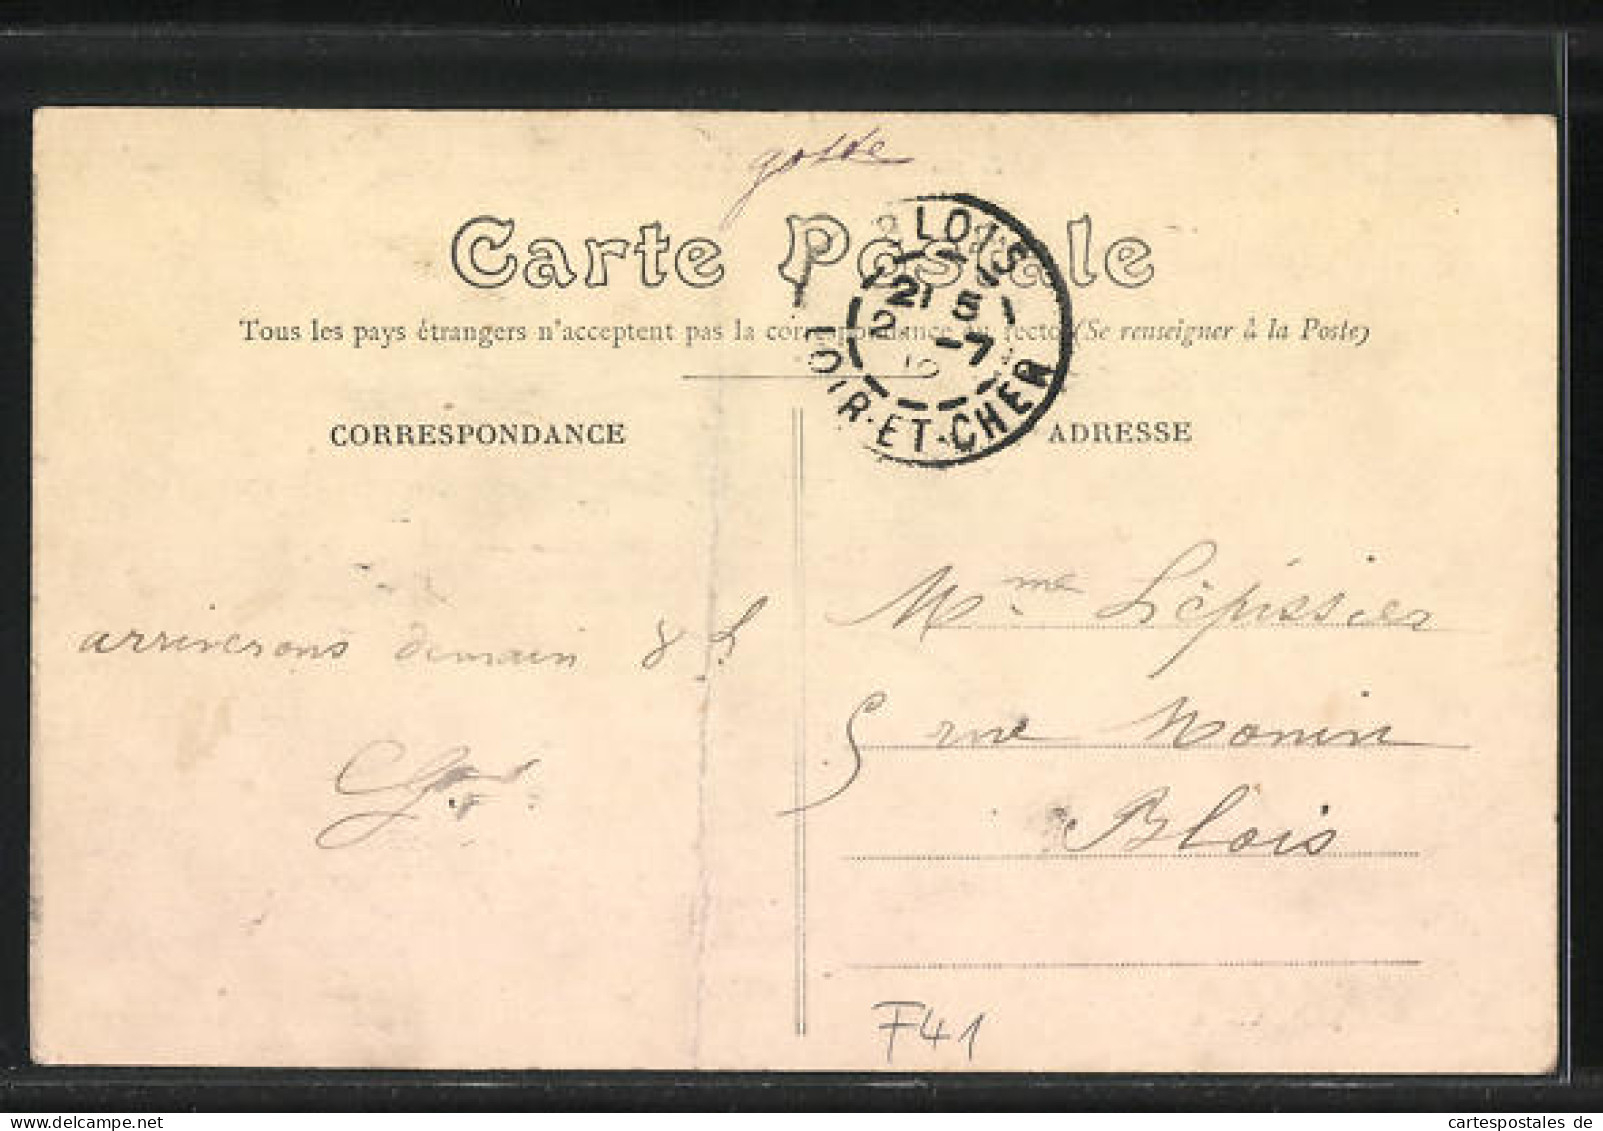 Carte Postale
Tous les pays étrangers n'acceptent pas la correspondance au recto (Se renseigner à la Poste)
BLOIS
21 5
-7
LOIR-ET-CHER
CORRESPONDANCE
ADRESSE
arriverons demain 8 h
Mme Lépissier
5 rue Monin
Blois
F41
cartespostales de